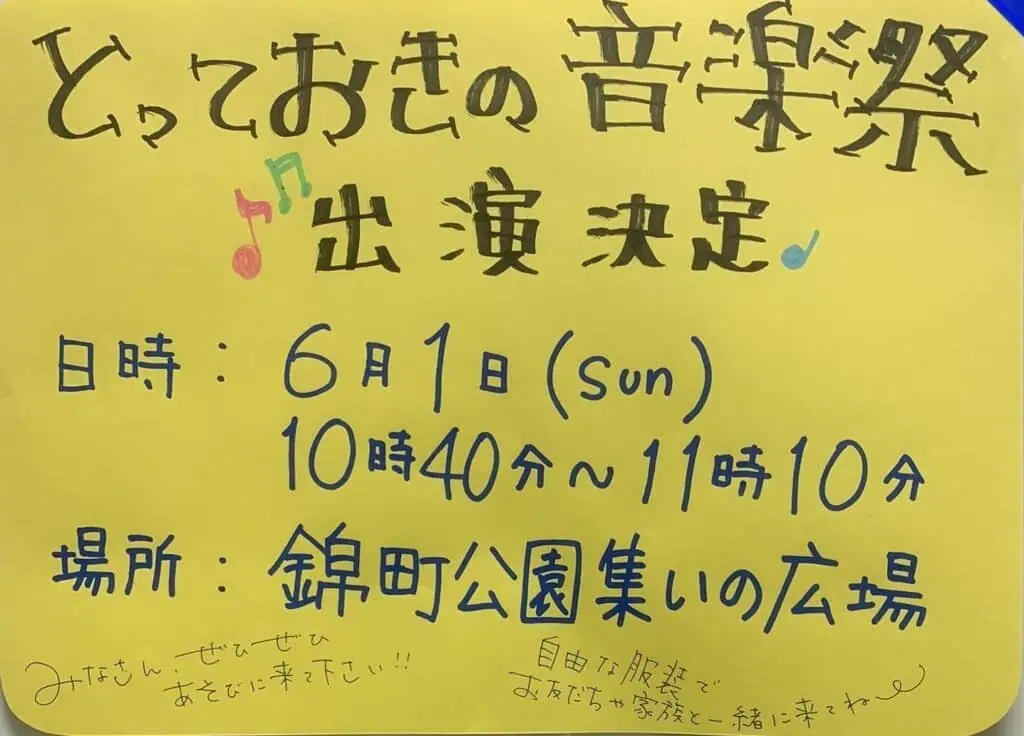 とっておきの音楽祭
出演決定
日時：6月1日(sun)
10時40分〜11時10分
場所：錦町公園集いの広場
みなさん、ぜひぜひ
あそびに来て下さい!!
自由な服装で
お友だちや家族と一緒に来てねー